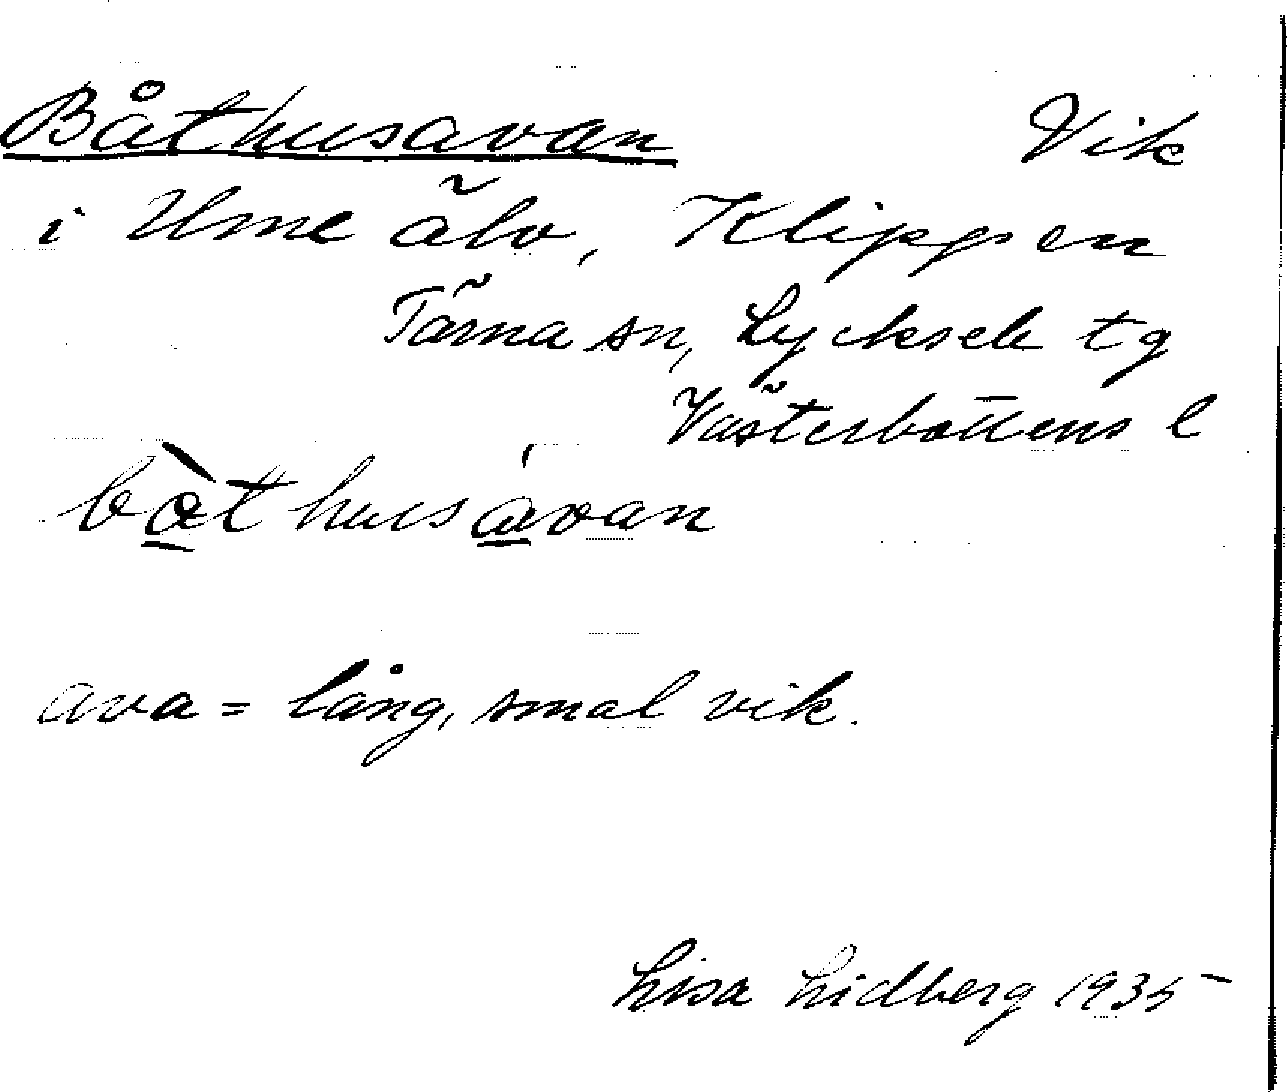 Båthusavan Vik
i Ume älv, Klippen
Tärna sn, Lycksele tg
Västerbottens l
bàthusávan
ava = lång, smal vik.
Lisa Lidberg 1935